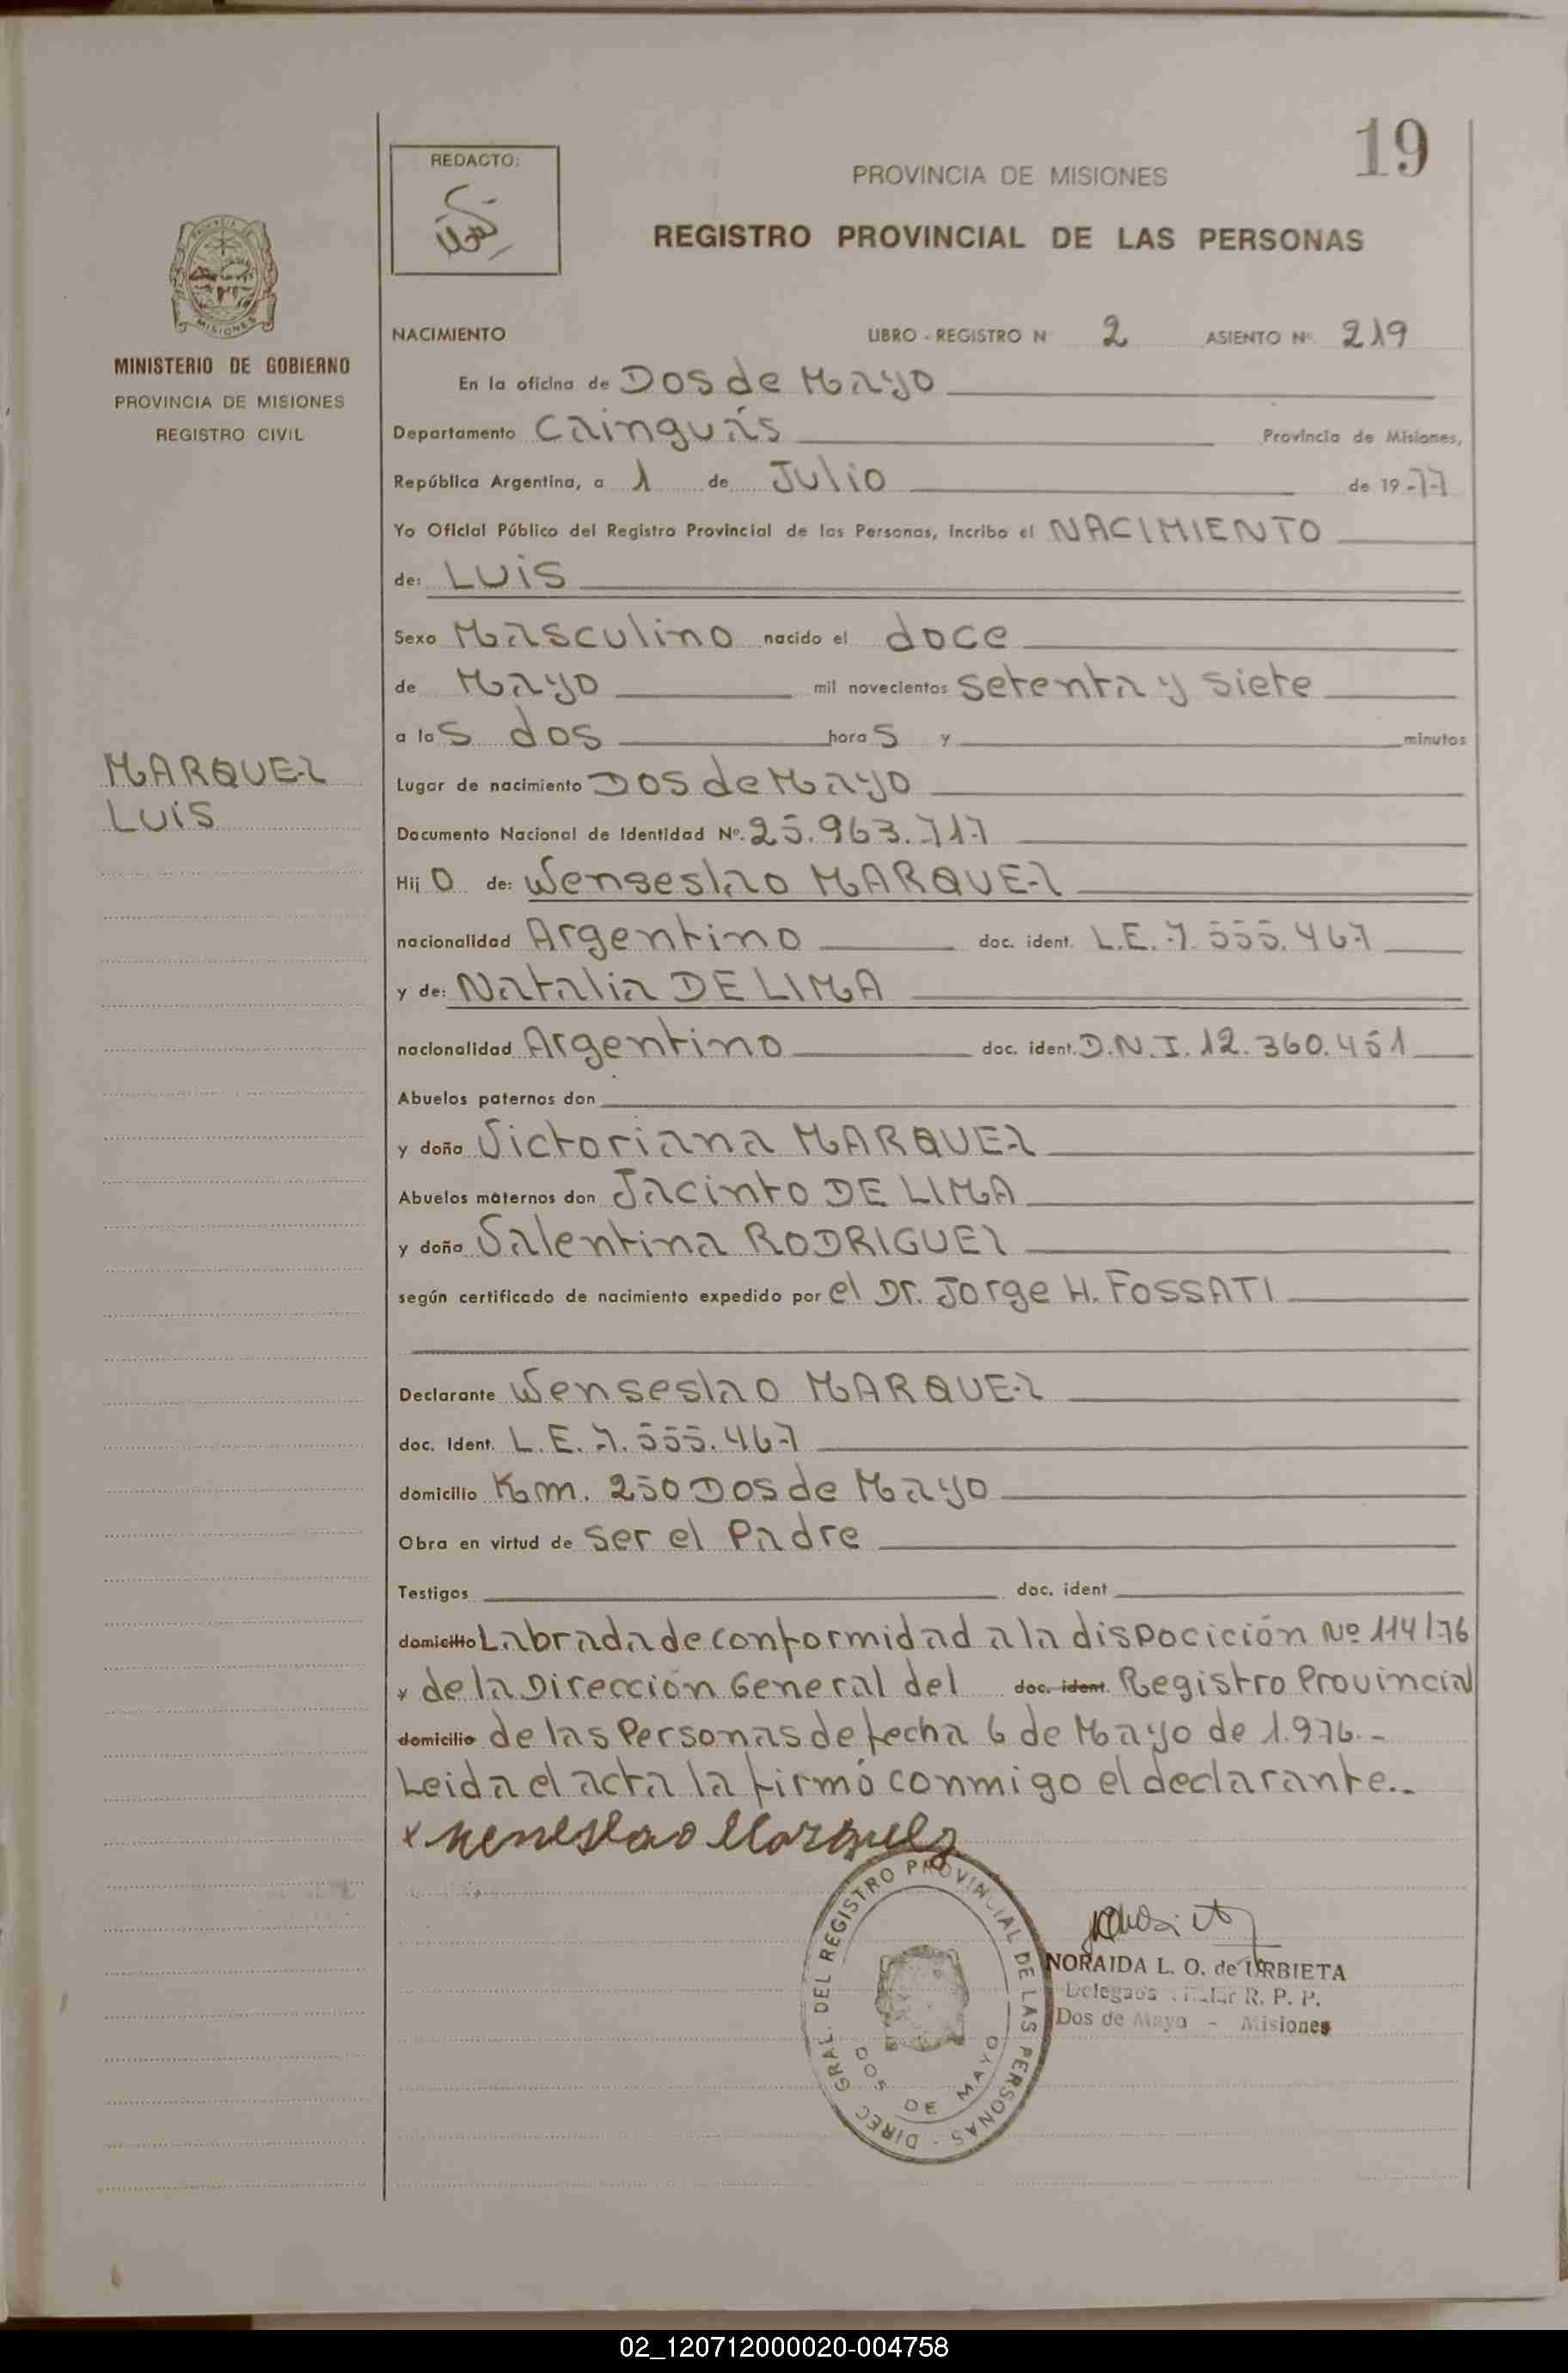 19
REDACTO:
PROVINCIA DE MISIONES
REGISTRO PROVINCIAL DE LAS PERSONAS
MISIONES
MINISTERIO DE GOBIERNO
PROVINCIA DE MISIONES
REGISTRO CIVIL
MARQUEZ
LUIS
NACIMIENTO LIBRO - REGISTRO N° 2 ASIENTO N° 219
En la oficina de Dos de Mayo
Departamento Cainguás Provincia de Misiones,
República Argentina, a 1 de Julio de 19 77
Yo Oficial Público del Registro Provincial de las Personas, incribo el NACIMIENTO
de: LUIS
Sexo Masculino nacido el doce
de Mayo mil novecientos setenta y siete
a las dos horas y minutos
Lugar de nacimiento Dos de Mayo
Documento Nacional de Identidad N°. 25.963.717
Hijo de: Wenseslao MARQUEZ
nacionalidad Argentino doc. ident. L.E. 7.555.467
y de: Natalia DE LIMA
nacionalidad Argentino doc. ident. D.N.I. 12.360.451
Abuelos paternos don
y doña Victoriana MARQUEZ
Abuelos maternos don Jacinto DE LIMA
y doña Valentina RODRIGUEZ
según certificado de nacimiento expedido por el Dr. Jorge H. FOSSATI
Declarante Wenseslao MARQUEZ
doc. Ident. L.E. 7.555.467
domicilio Km. 250 Dos de Mayo
Obra en virtud de ser el Padre
Testigos doc. ident
domicilio Labrada de conformidad a la dispocición Nº 114/76
y de la Dirección General del doc. ident. Registro Provincial
domicilio de las Personas de fecha 6 de Mayo de 1.976.-
Leida el acta la firmó conmigo el declarante..
x Wenseslao Marquez
DIREC GRAL. DEL REGISTRO PROVINCIAL DE LAS PERSONAS -
DOS DE MAYO
NORAIDA L. O. de URBIETA
Delegada Titular R. P. P.
Dos de Mayo - Misiones
02_120712000020-004758